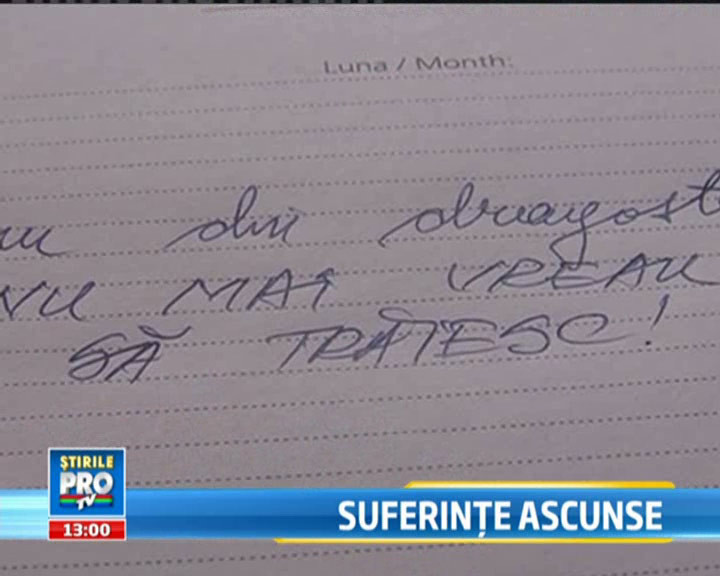 Luna / Month:
din dragost
NU MAI VREAU
SĂ TRĂIESC!
ȘTIRILE
PRO
TV
13:00
SUFERINȚE ASCUNSE